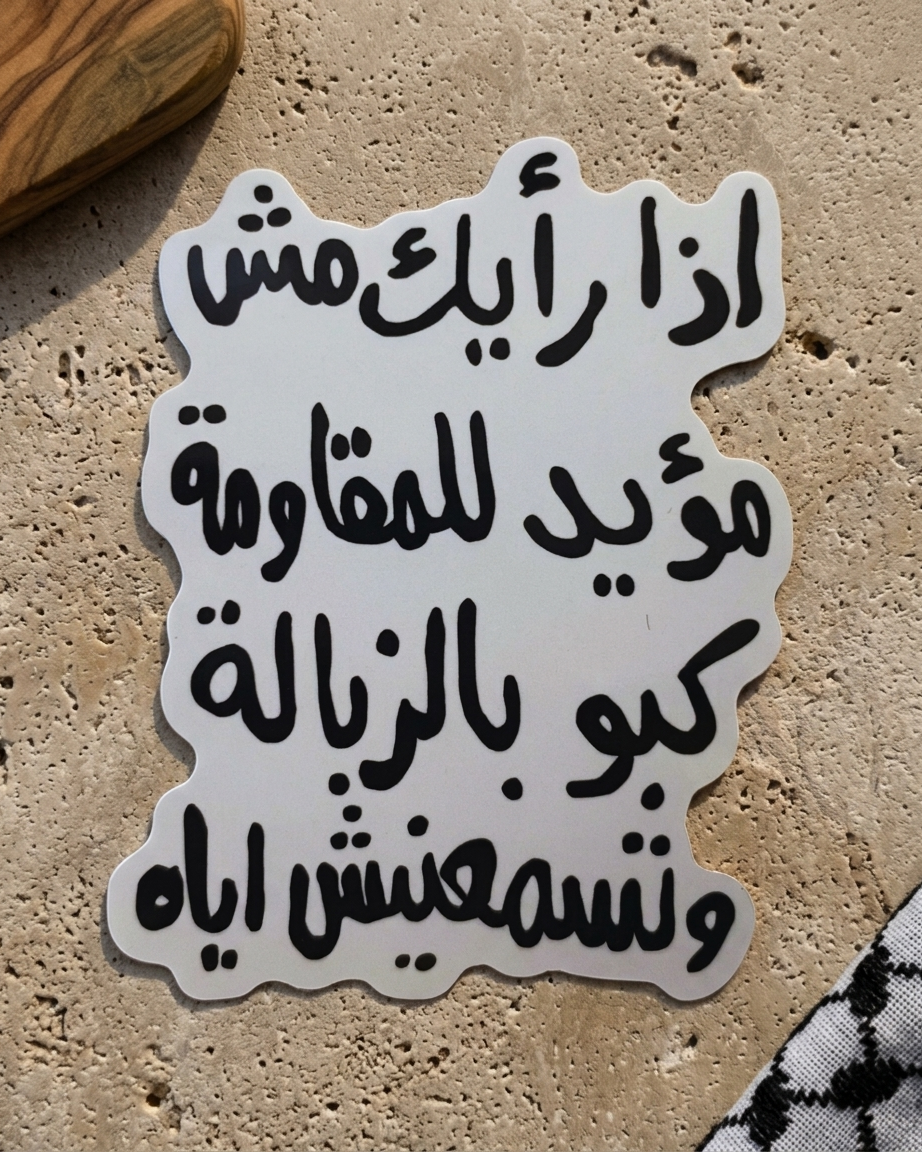 اذا رأيك مش
مؤيد للمقاومة
كبو بالزبالة
وتسمعنيش اياه